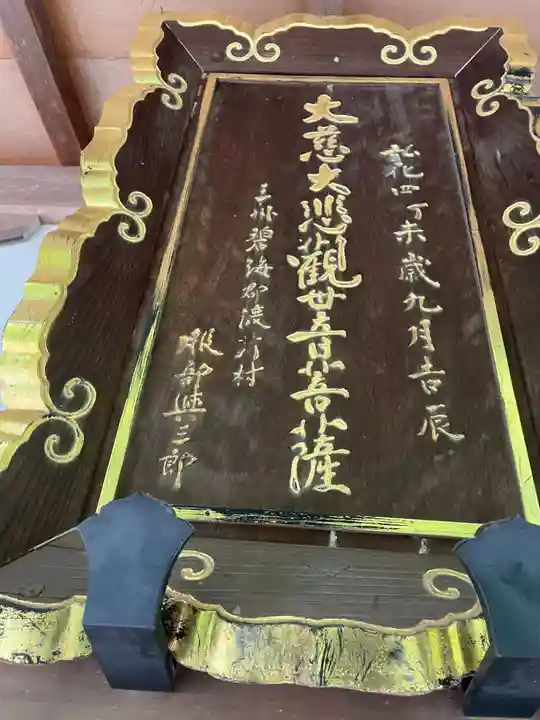 弘化四丁未歳九月吉辰
大慈大悲觀世音菩薩
三州碧海郡渡刈村
服部與三郎